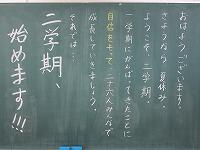 おはようございます。
さようなら夏休み、
ようこそ、二学期。
一学期にがんばってきたことに
自信をもって、二十六人みんなで
成長していきましょう。
それでは…
二学期、
始めます!!!